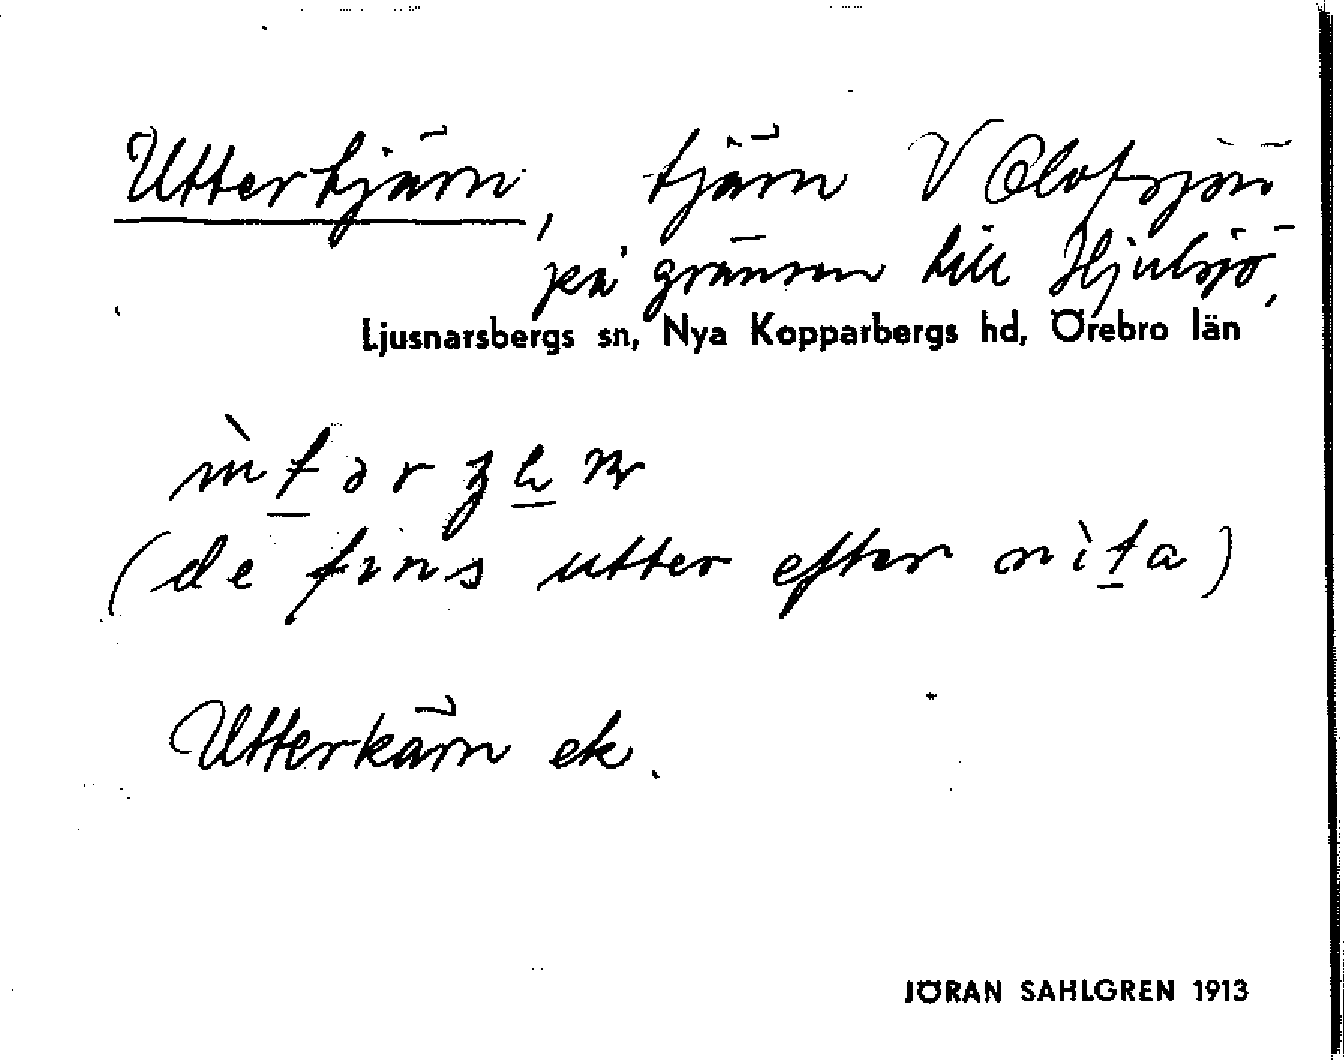 Uttertjärn, tjärn V Olofsjön
på gränsen till Hjulsjö,
Ljusnarsbergs sn, Nya Kopparbergs hd, Örebro län
(de fins utter efter nìta)
Utterkärn ek.
JÖRAN SAHLGREN 1913